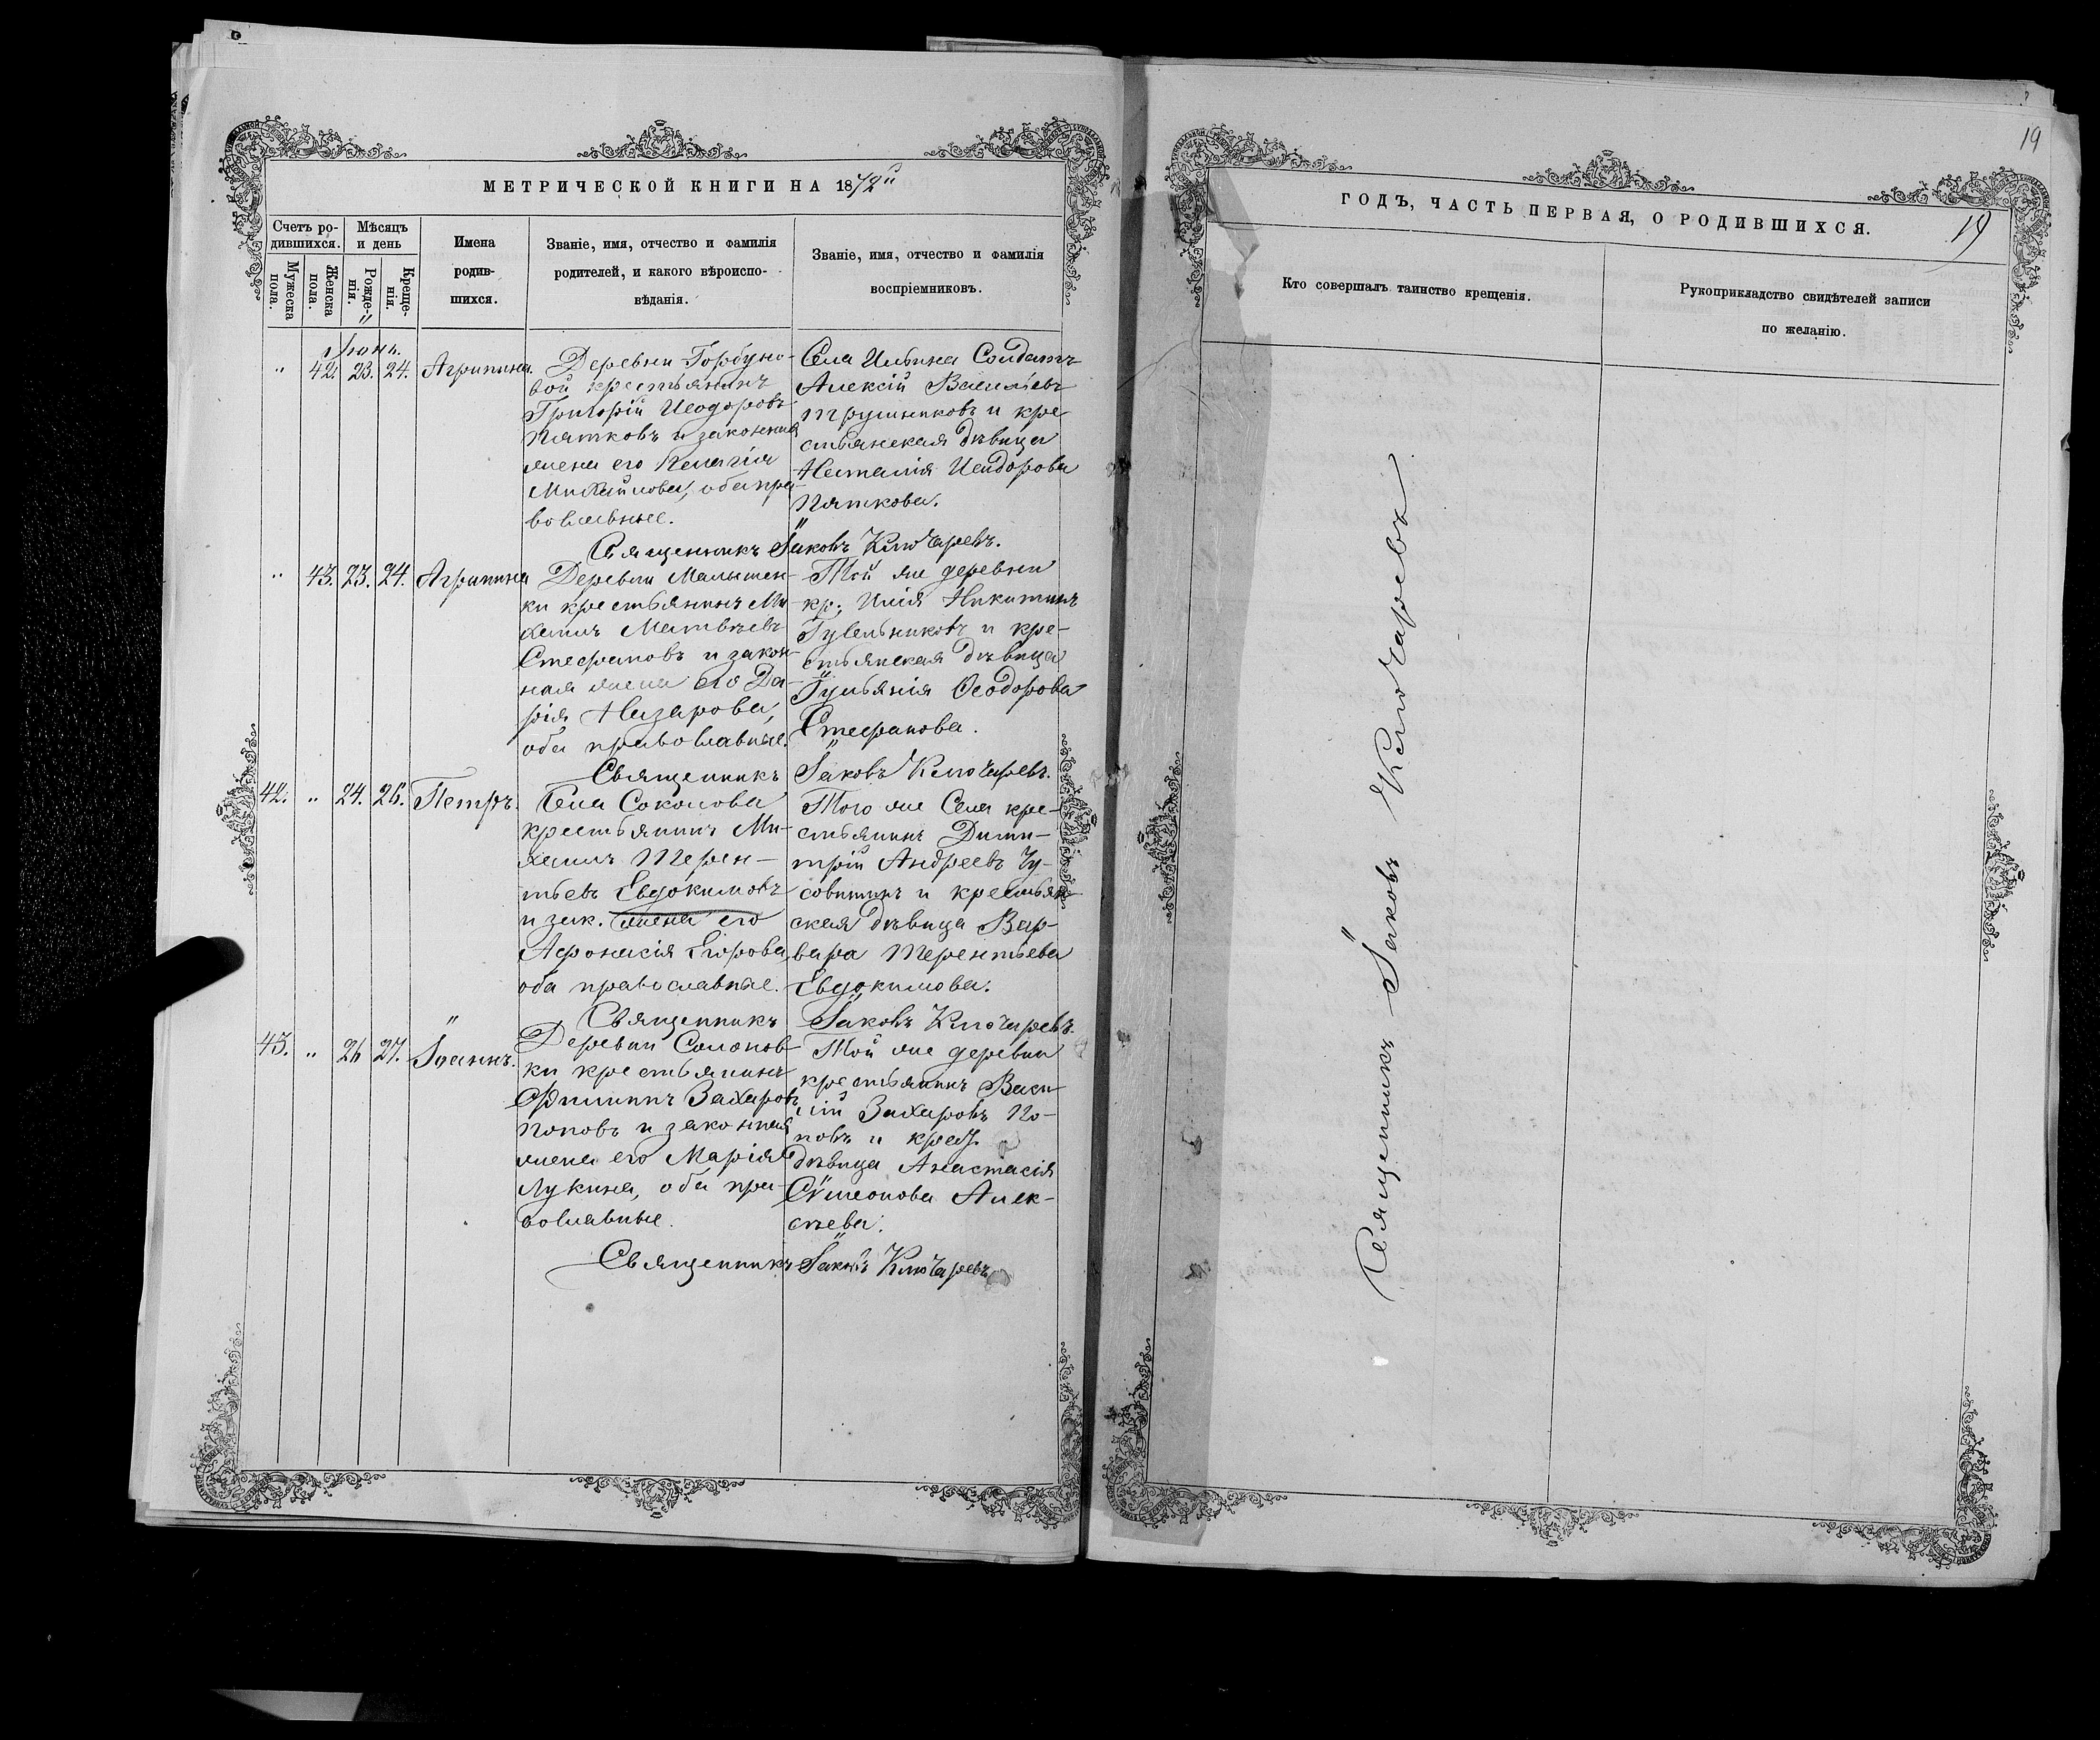 МЕТРИЧЕСКОЙ КНИГИ НА 1872й
Счетъ ро-
дившихся.
Мѣсяцъ
и день
Мужеска
пола.
Женска
пола.
Рожде-
нія.
Креще-
нія.
Имена
родив-
шихся.
Званіе, имя, отчество и фамилія
родителей, и какого вѣроиспо-
вѣданія.
Званіе, имя, отчество и фамилія
воспріемниковъ.
Іюнь.
" 42. 23. 24. Агрипина.
Деревни Горбуно-
вой крестьянинъ
Григорій Исидоровъ
Пятковъ и законная
жена его Пелагія
Михайлова, оба пра-
вославные.
Села Ильина Солдатъ
Алексій Васильевъ
Трушниковъ и кре-
стьянская дѣвица
Наталія Исидорова
Пяткова.
Священникъ Іаковъ Ключаревъ.
" 43. 23. 24. Агрипина
Деревни Малышен-
ки крестьянинъ Ми-
хаилъ Матвѣевъ
Стефановъ и закон-
ная жена его Да-
рія Назарова,
оба православные.
Той же деревни
кр. Илія Никитинъ
Гусельниковъ и кре-
стьянская дѣвица
Іуліанія Ѳеодорова
Стефанова.
Священникъ Іаковъ Ключаревъ.
42. " 24. 26. Петръ.
Села Соколова
крестьянинъ Ми-
хаилъ Терен-
тьевъ Евдокимовъ
и зак. жена его
Афонасія Егорова,
оба православные.
Того же Села кре-
стьянинъ Дими-
трій Андреевъ Чу-
совитинъ и крестьян-
ская дѣвица Вар-
вара Терентьева
Евдокимова.
Священникъ Іаковъ Ключаревъ.
43. " 26 27. Іоаннъ.
Деревни Солонов-
ки крестьянинъ
Филиппъ Захаровъ
Поповъ и законная
жена его Марія
Лукина, оба пра-
вославные.
Той же деревни
крестьянинъ Васи-
лій Захаровъ По-
повъ и крест.
дѣвица Анастасія
Сѵмеонова Алек-
сѣева.
Священникъ Іаковъ Ключаревъ
19
ГОДЪ, ЧАСТЬ ПЕРВАЯ, О РОДИВШИХСЯ.
19
Кто совершалъ таинство крещенія.
Рукоприкладство свидѣтелей записи
по желанію.
Священникъ Іаковъ Ключаревъ